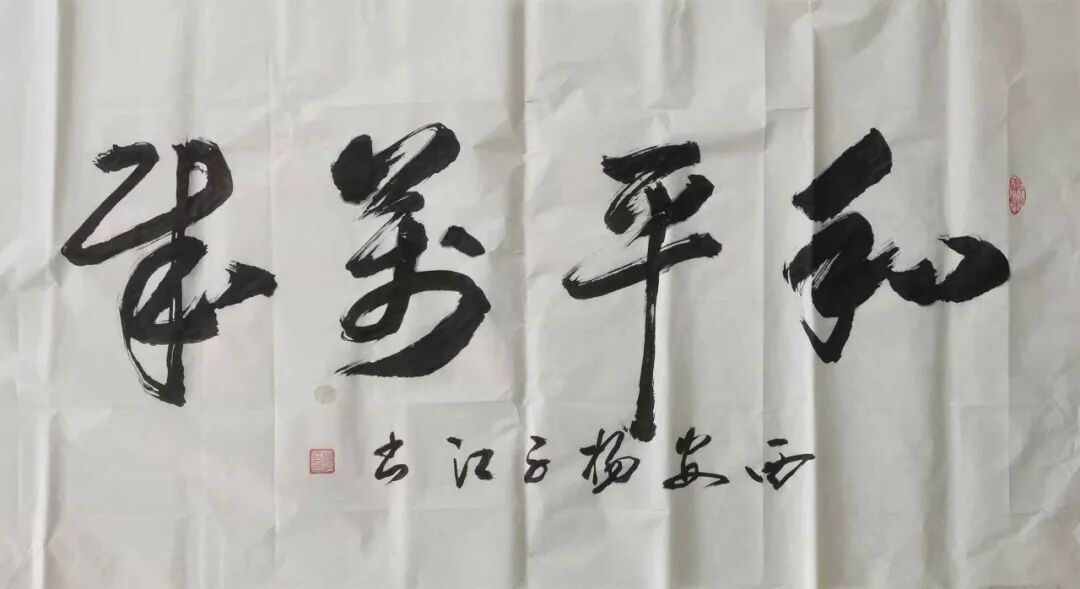 和平萬歲
西安杨子江书